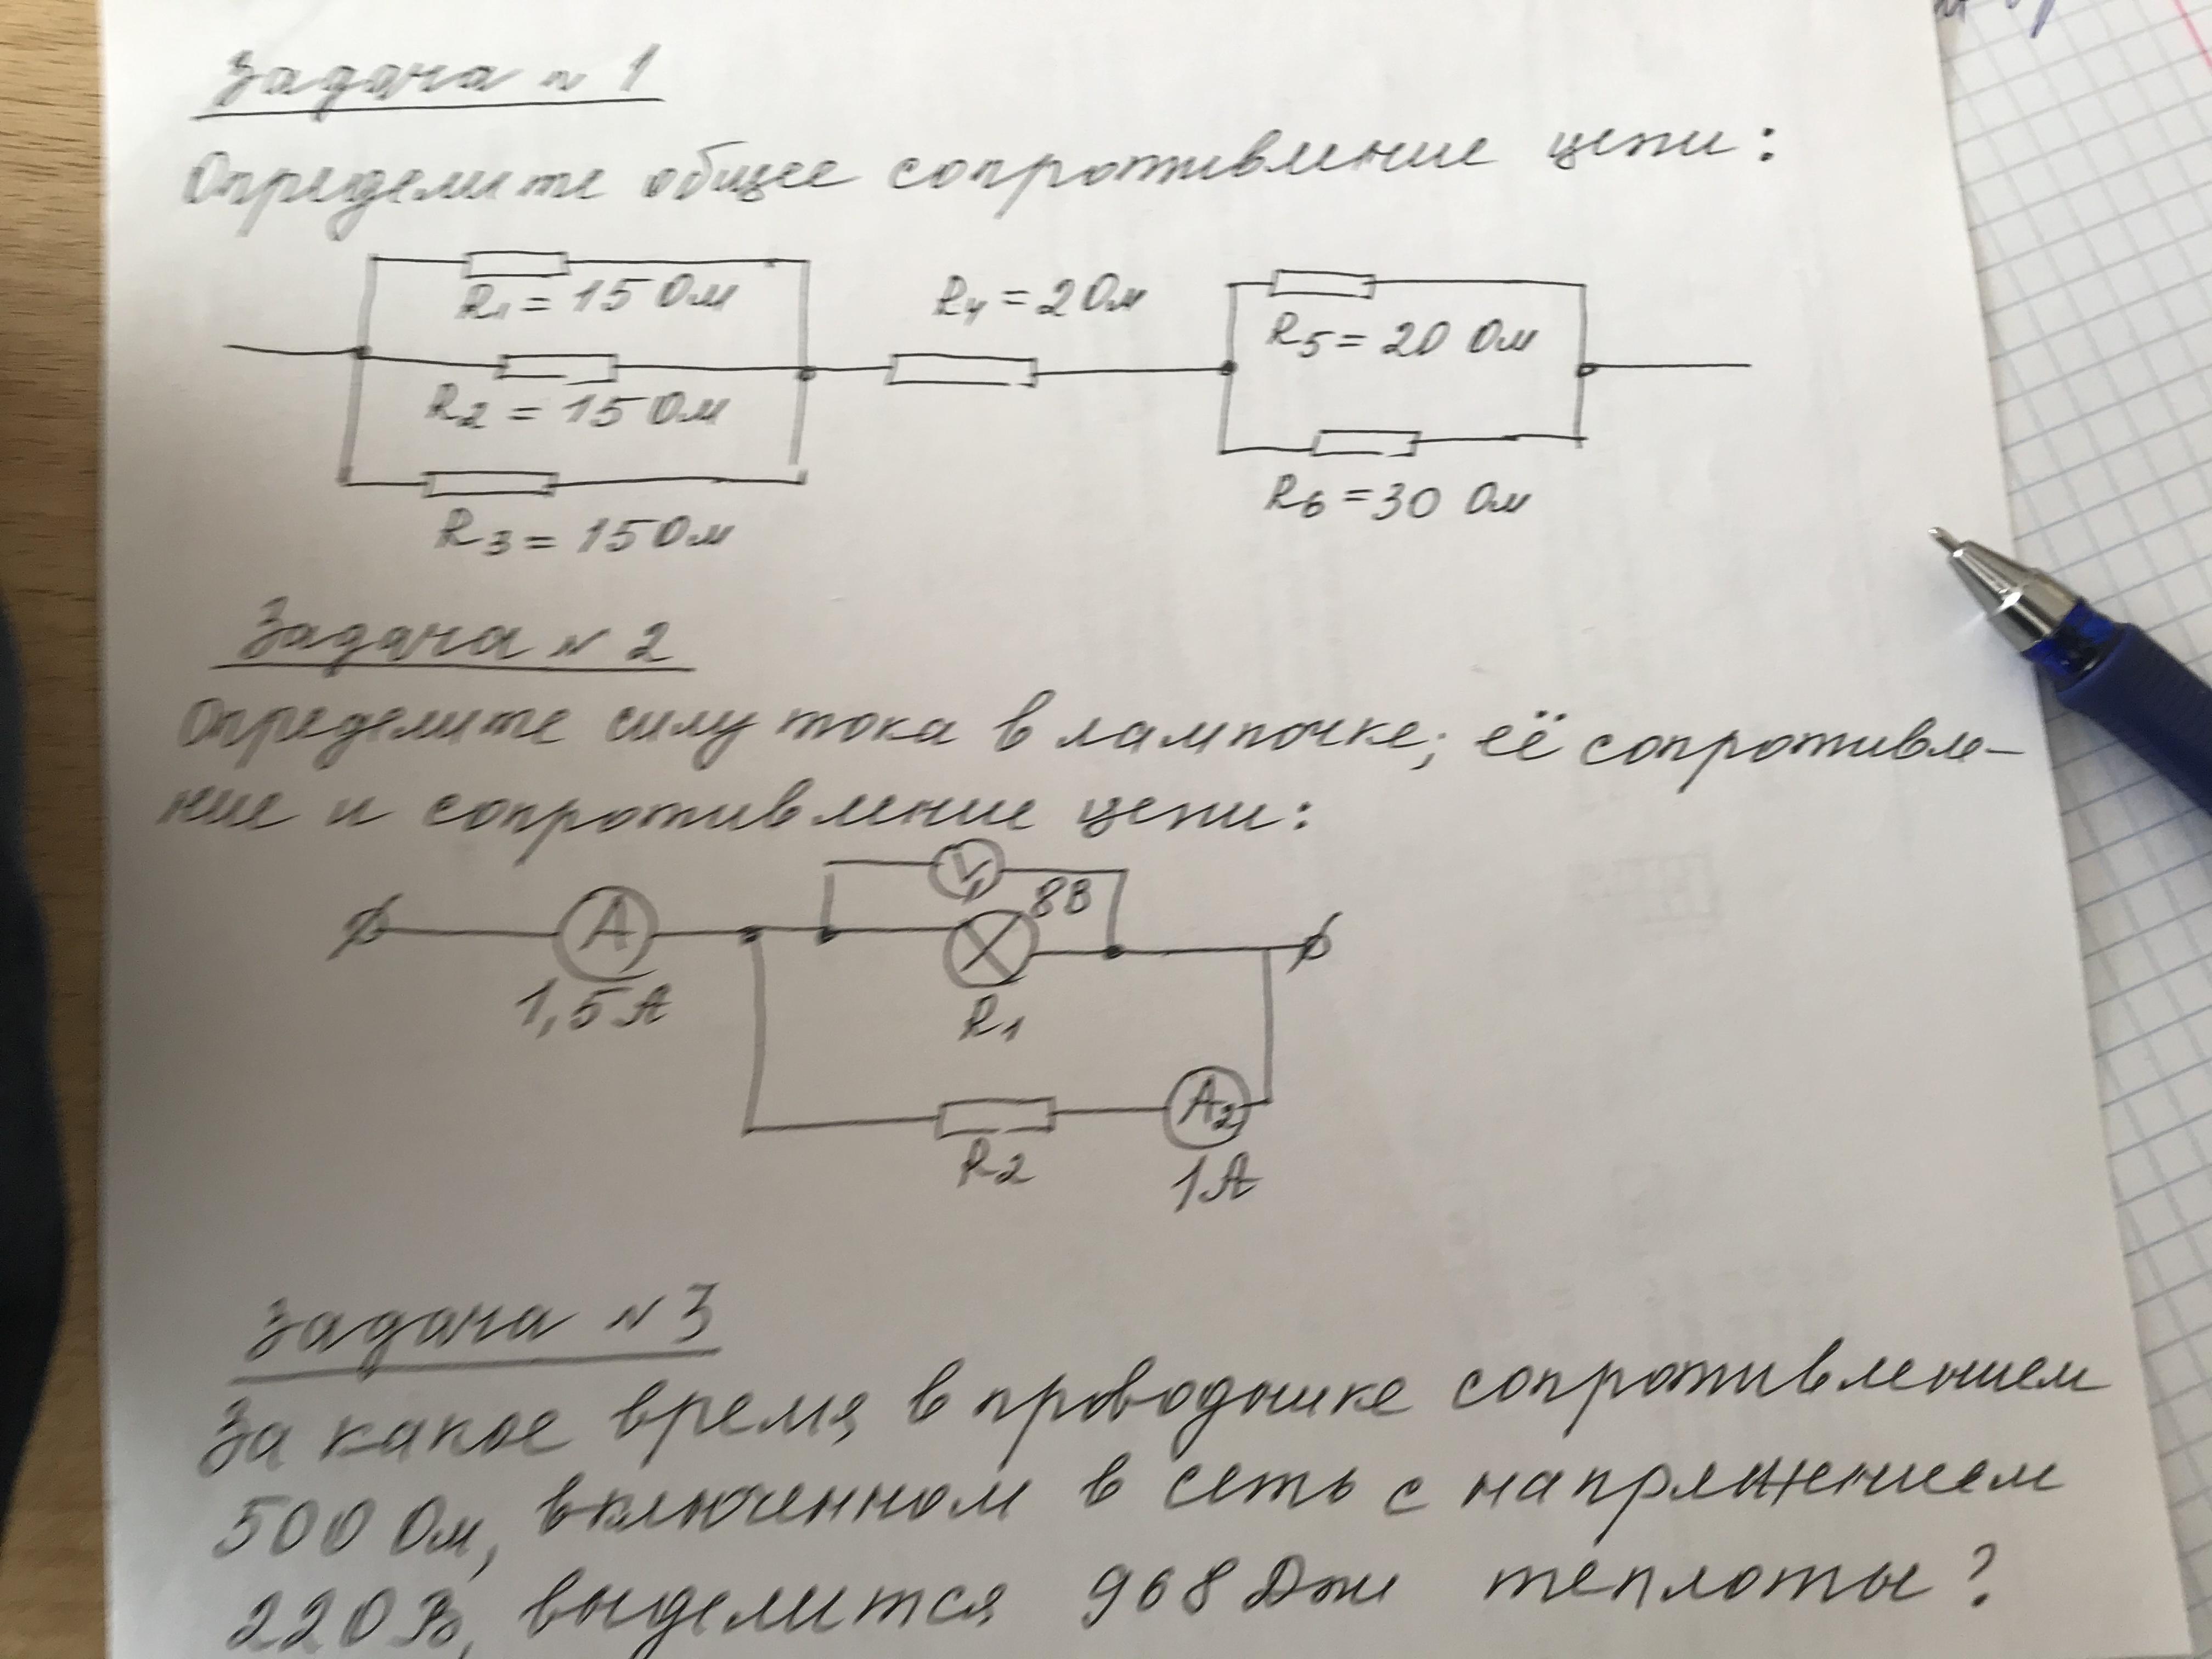 Задача № 1
Определите общее сопротивление цепи:
R1 = 15 Ом
R4 = 2 Ом
R5 = 20 Ом
R2 = 15 Ом
R6 = 30 Ом
R3 = 15 Ом
Задача № 2
Определите силу тока в лампочке; её сопротивле-
ние и сопротивление цепи:
V1
8В
A
1,5 А
R1
A2
R2
1А
Задача № 3
За какое время в проводнике сопротивлением
500 Ом, включенном в сеть с напряжением
220В, выделится 968 Дж теплоты?